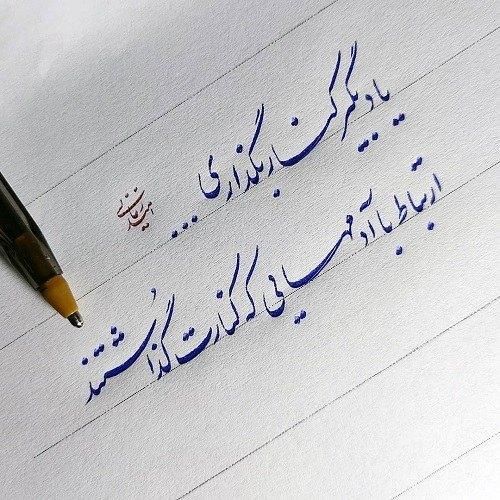 یاد بگیر کنار بگذاری ...
ارتباط با آدمهایی که کنارت گذاشتند